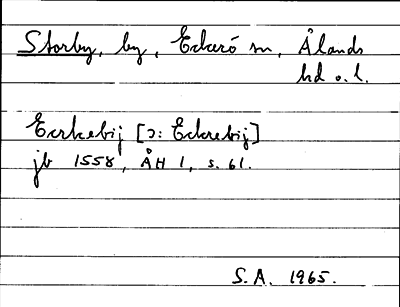 Storby, by, Eckerö sn, Ålands
hd o. l.
Eerkebij [ɔ: Eckrebij]
jb 1558, ÅH 1, s. 61.
S.A. 1965.